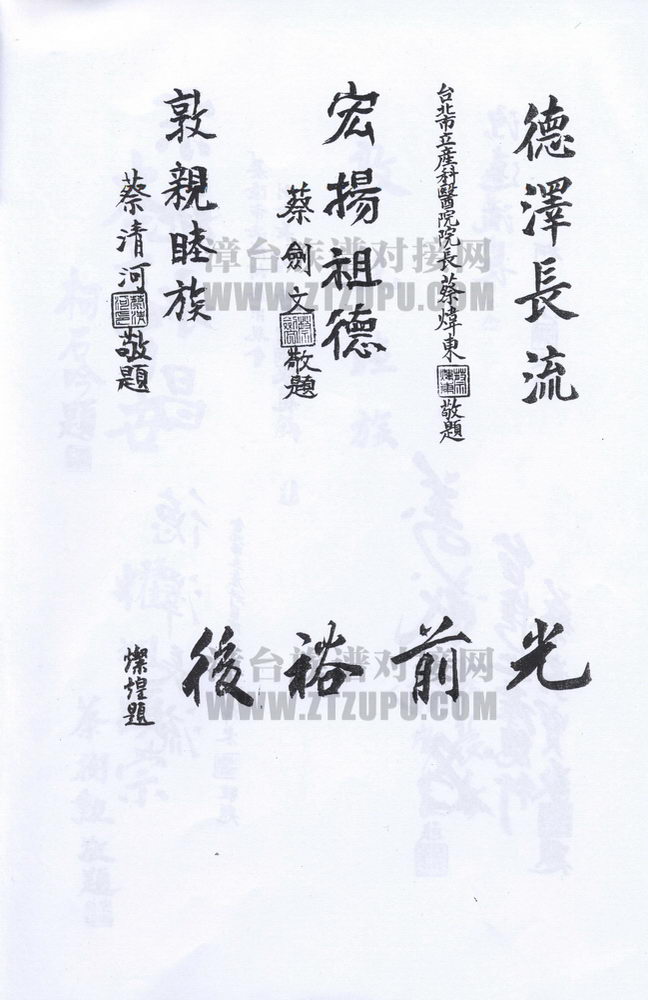 德澤長流
台北市立產科醫院院長蔡煒東
敬題
宏揚祖德
蔡劍文
敬題
敦親睦族
蔡清河
敬題
漳台族谱对接网
WWW.ZTZUPU.COM
光前裕後
燦煌題
漳台族谱对接网
WWW.ZTZUPU.COM